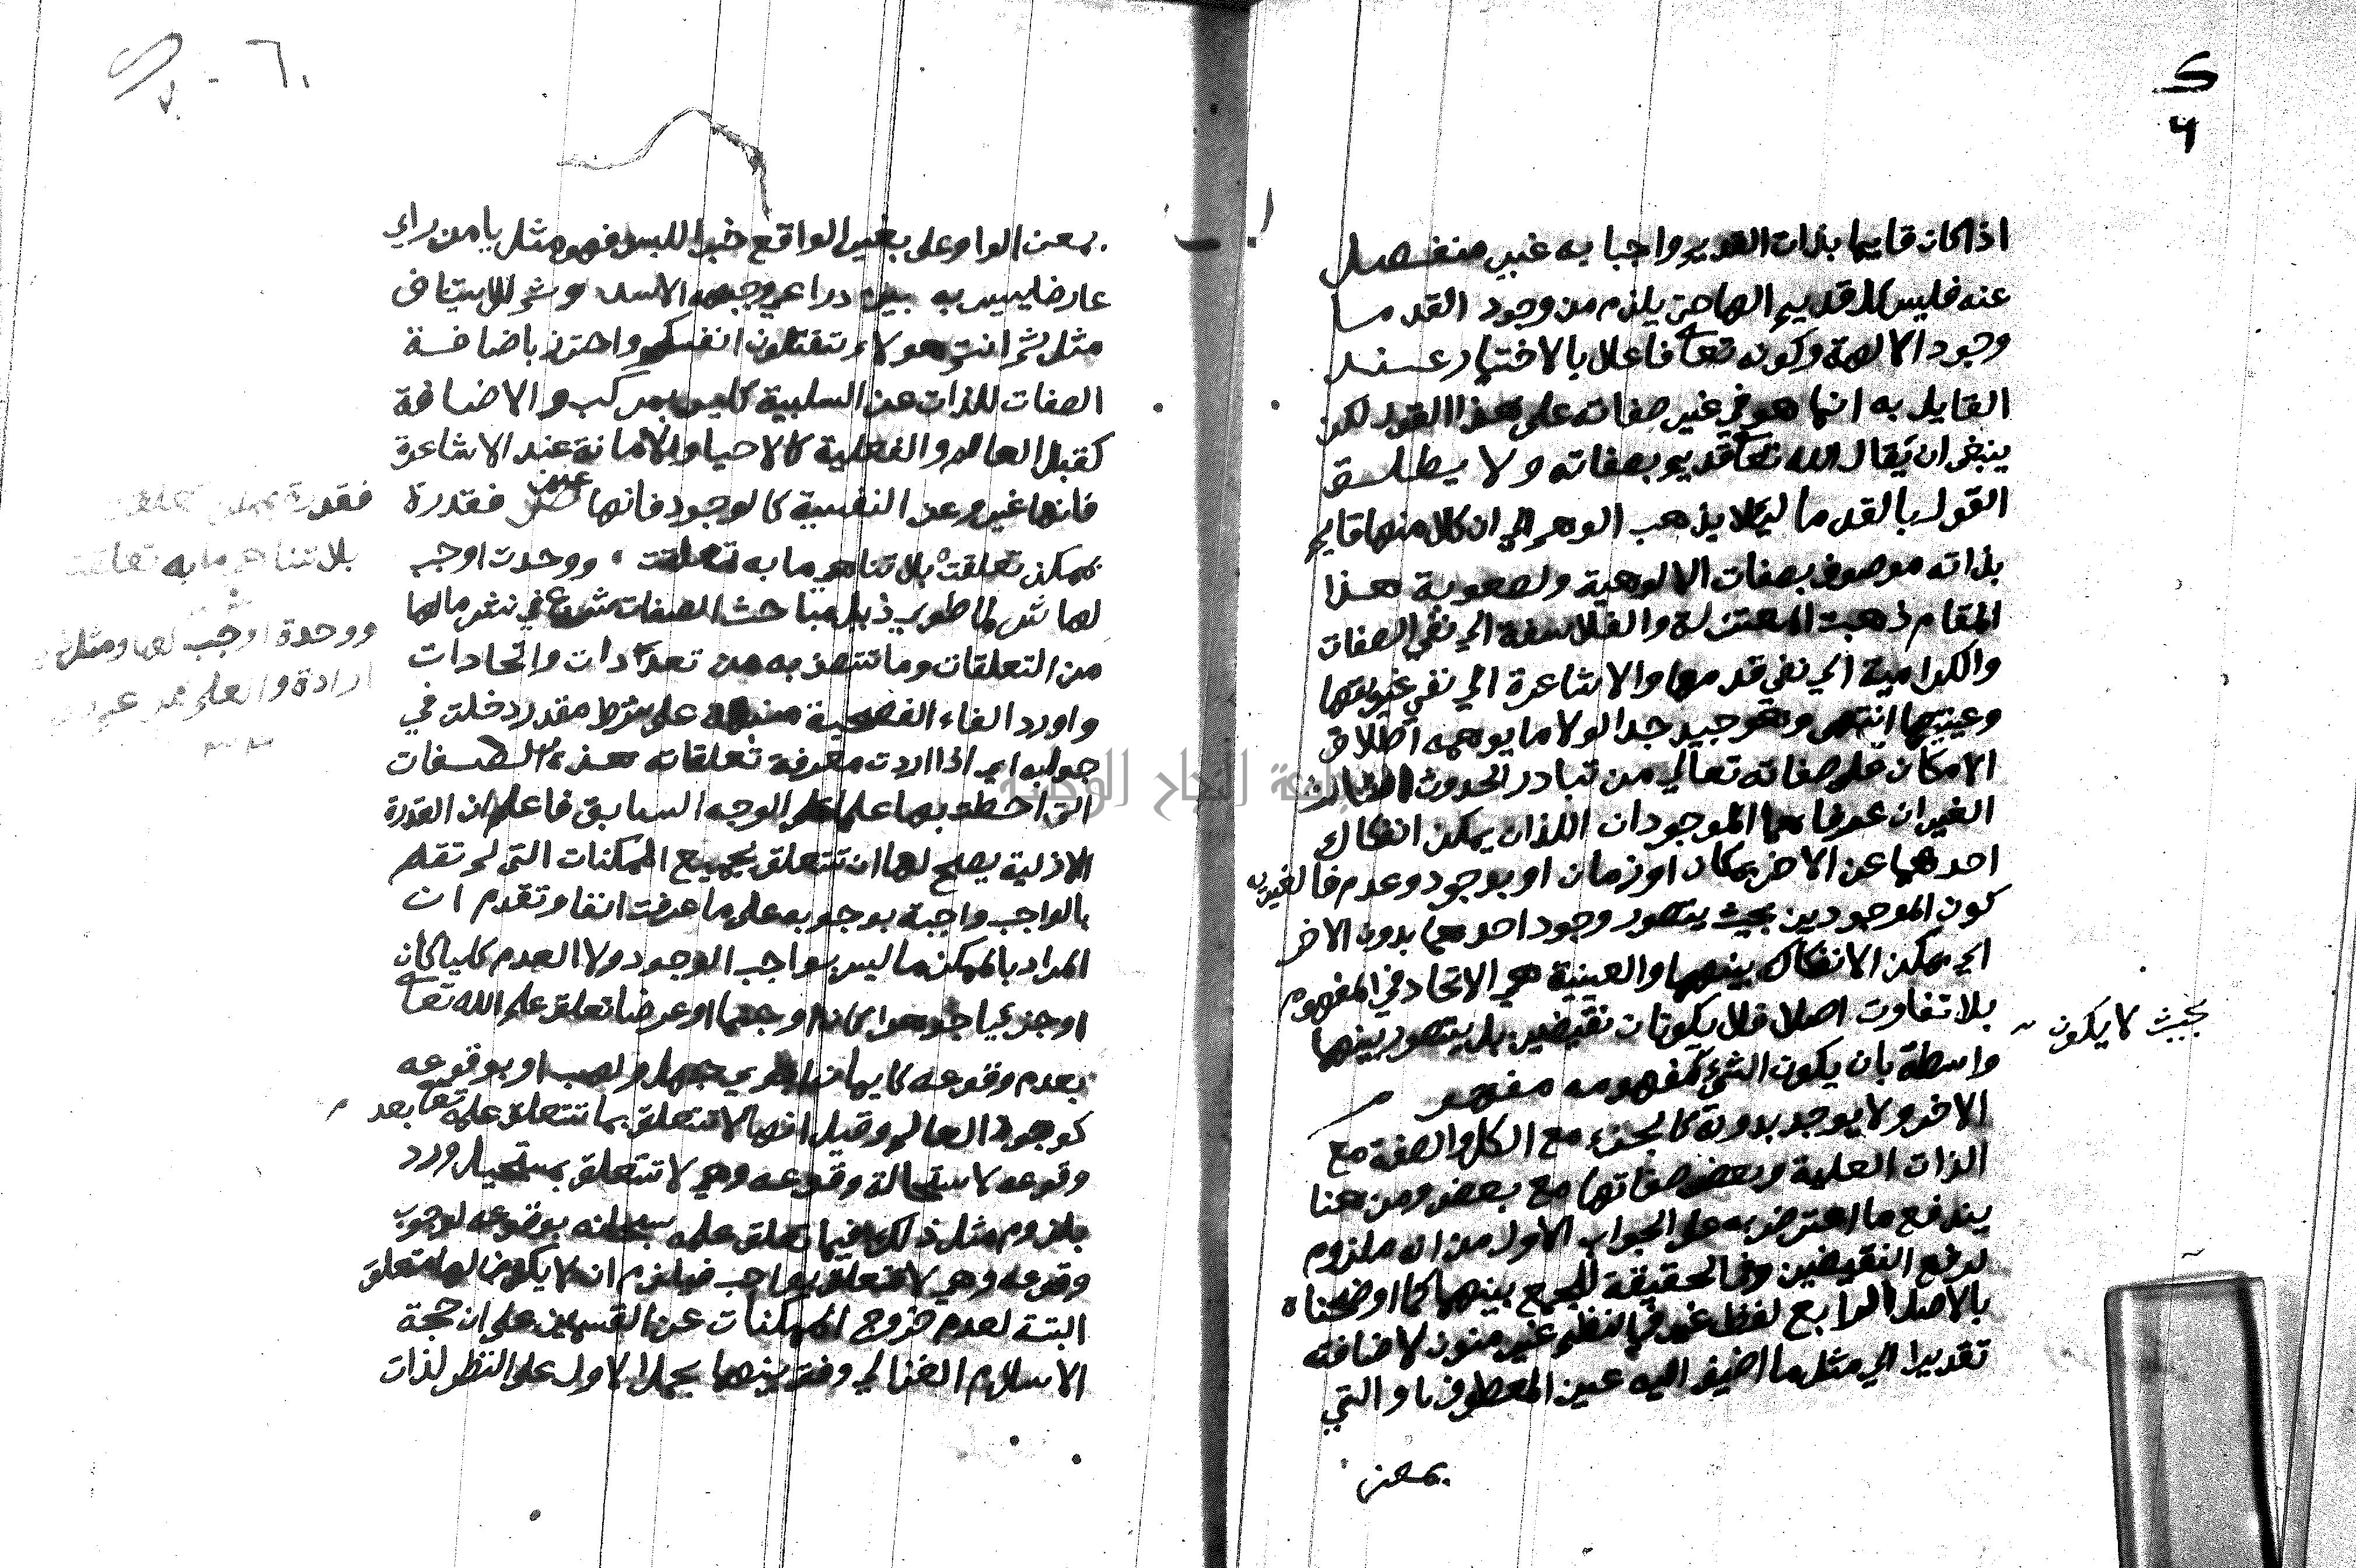 اذا كان قايما بذات القديم واجبا به غير منفصل
عنه فليس كل قديم الها حتى يلزم من وجود القدما
وجود الالهة وكونه تعا فاعلا بالاختيار عند
القايل به انما هو في غير صفاته على هذا القول لكن
ينبغي ان يقال الله تعا قديم بصفاته ولا يطلق
القول بالقدما ليلا يذهب الوهم الي ان كلا منها قايم
بذاته موصوف بصفات الالوهية ولصعوبة هذا
المقام ذهبت المعتزلة والفلاسفة الي نفي الصفات
والكرامية الي نفي قدمها والاشاعرة الي نفي غيريتها
وعينيتها انتهى وهو جيد جدا لولا ما يوهمه اطلاق
الامكان على صفاته تعالي من تبادر الحدوث
الغيران عرفا هما الموجودان اللذان يمكن انفكاك
احدهما عن الاخر بمكان او زمان او بوجود وعدم فالغيرية
كون الموجودين بحيث يتصور وجود احدهما بدون الاخر
اي يمكن الانفكاك بينهما والعينية هي الاتحاد في المفهوم
بلا تفاوت اصلا فلا يكونان نقيضين بل يتصور بينهما
واسطة بان يكون الشئ مفهومه مفهوم
بحيث لا يكون
الاخر ولا يوجد بدونه كالجزء مع الكل والصفة مع
الذات العلية وبعض صفاتها مع بعض ومن هنا
يندفع ما اعترض به على الجواب الاول من انه ملزوم
لرفع النقيضين وفي الحقيقة للجمع بينهما كما اوضحناه
بالاصل الرابع لفظ غير في النظم غير منون لاضافته
تقديرا الي مثل ما اضيف اليه عين المعطوف باو التي
بمعنى
بمعنى الواو على بغير الواقع خبرا لليس فهو مثل يا من راي
عارضا يسر به بين ذراعي وجبهة الاسد وثم للاستيناف
مثل ثم انتم هولاء تقتلون انفسكم واحترز باضافة
الصفات للذات عن السلبية كليس بمركب والاضافة
كقبل العالم والفعلية كالاحيا والاماتة عند الاشاعرة
فانها غير وعن النفسية كالوجود فانها عين فقدرة
بممكن تعلقت بلا تناهي ما به تعلقت ووحدت اوجب
لها شي لما طوي ذيل مباحث الصفات شرع في نشر ما لها
من التعلقات وما تتصف به من تعددات واتحادات
واورد الفاء الفصيحة منبهة على شرط مقدر دخلت في
جوابه اي اذا اردت معرفة تعلقات هذه الصفات
التي احطت بها علما على الوجه السابق فاعلم ان القدرة
الازلية يصلح لها ان تتعلق بجميع الممكنات التي لم تقم
بالواجب واجبة بوجوبه على ما عرفت انفا وتقدم ان
المراد بالممكن ما ليس بواجب الوجود ولا العدم كليا كان
او جزئيا جوهرا كان او جسما او عرضا تعلق علم الله تعا
بعدم وقوعه كايمان ابي جهل ولهب او بوقوعه
كوجود العالم وقيل انها لا تتعلق بما تتعلق علمه تعا بعدم
وقوعه لاستحالة وقوعه وهي لا تتعلق بمستحيل ورد
بلزوم مثل ذلك فيما تعلق علمه سبحانه بوقوعه لوجوب
وقوعه وهي لا تتعلق بواجب فيلزم ان لا يكون لها متعلق
البتة لعدم خروج الممكنات عن القسمين على ان حجة
الاسلام الغزالي وفق بينهما بحمل الاول على النظر لذات
فقدرة بممكن تعلقت
بلا تناهي ما به تعلقت
ووحدة اوجب لها ومثل
ارادة والعلم